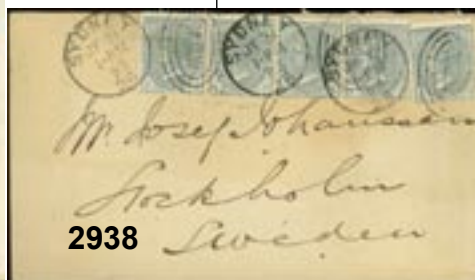 SYDNEY SYDNEY SYDNEY
Mr Josef Johansson
Stockholm
Sweden
2938